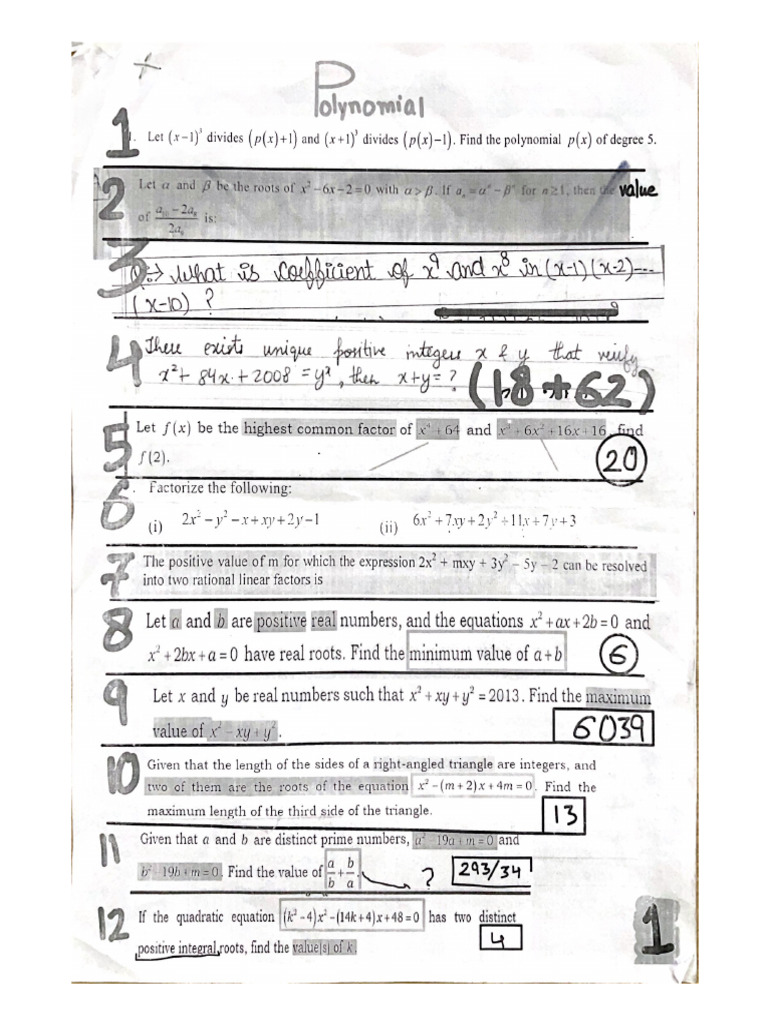 Polynomial
1. Let (x−1)³ divides (p(x)+1) and (x+1)³ divides (p(x)−1). Find the polynomial p(x) of degree 5.
2 Let α and β be the roots of x²−6x−2=0 with α>β. If aₙ=αⁿ−βⁿ for n≥1, then the value
of (a₁₀−2a₈)/(2a₉) is:
3 Q:→ What is coefficient of x⁹ and x⁸ in (x-1)(x-2)----
(x-10) ?
4 There exists unique positive integers x & y that verify
x²+ 84x + 2008 = y², then x+y=? (18+62)
5 Let f(x) be the highest common factor of x⁴+64 and x³+6x²+16x+16, find
f(2). 20
6. Factorize the following:
(i) 2x²−y²−x+xy+2y−1 (ii) 6x²+7xy+2y²+11x+7y+3
7 The positive value of m for which the expression 2x² + mxy + 3y² − 5y − 2 can be resolved
into two rational linear factors is
8 Let a and b are positive real numbers, and the equations x²+ax+2b=0 and
x²+2bx+a=0 have real roots. Find the minimum value of a+b 6
9 Let x and y be real numbers such that x²+xy+y²=2013. Find the maximum
value of x²−xy+y². 6039
10 Given that the length of the sides of a right-angled triangle are integers, and
two of them are the roots of the equation x²−(m+2)x+4m=0. Find the
maximum length of the third side of the triangle. 13
11 Given that a and b are distinct prime numbers, a²−19a+m=0 and
b²−19b+m=0. Find the value of a/b+b/a. ? 293/34
12 If the quadratic equation (k²−4)x²−(14k+4)x+48=0 has two distinct
positive integral roots, find the value(s) of k. 4
1